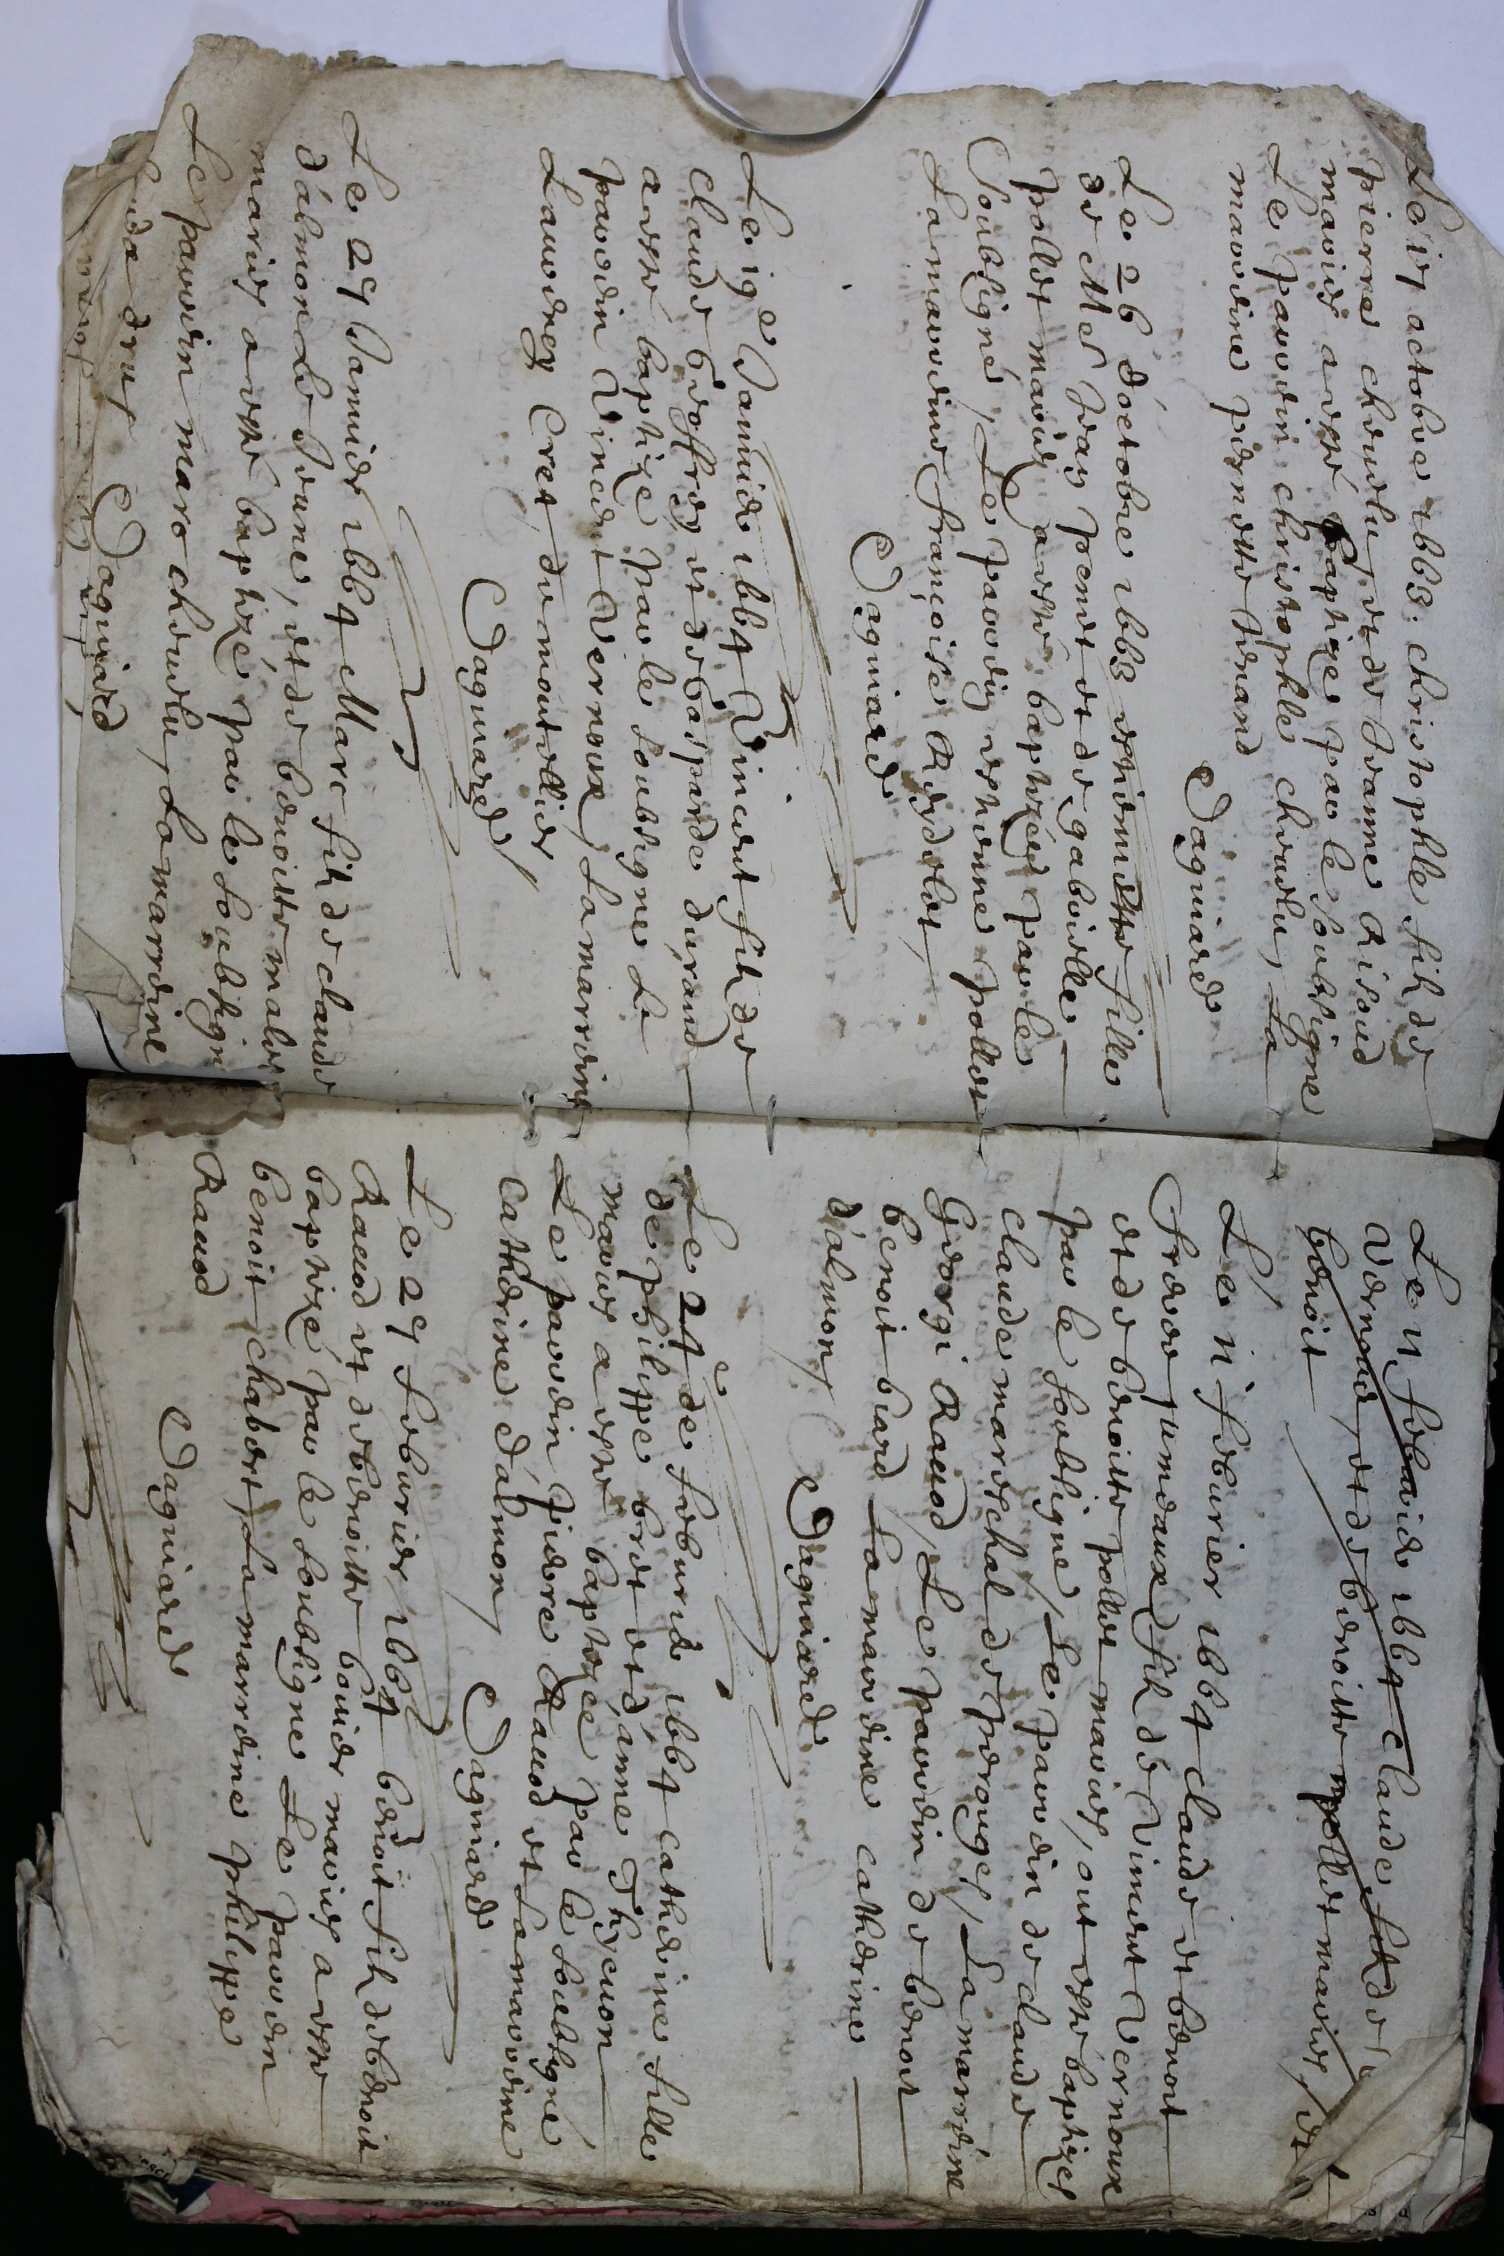 Le 17 octobre 1663 christophle filz de
pierre chevrlu et de Jeanne Risoud
mariés a esté baptizé par le soubsigné
Le parrdin christophle chevrlu, La
marrdine pernette ferrand
Daguiard
Le 26 d'octobre 1663 estiennette fille
de Mes Jean pemet et de gabrielle
pollet mariés a esté baptizée par le
Soubsigné, Le parrdin estienne pollet
La marrdine francoise Reydellet,
Daguiard
Le 19e Januier 1664 Vincent filz de
claude Geoffrey et de Gasparde durand
a esté baptizé par le soubsigné Le
parrdin Vincent Vernoux, La marrdine
Laurdney Cret, du montellier
Daguiard
Le 29 Januier 1664 Marc filz de claude
dálmon le Jeune, et de benoitte
mariés a esté baptizé par le soubsigné
Le parrdin marc chevrlu, La marrdine
Daguiard
Le 11 febvrier 1664 claude filz de
Vernoux, et de benoitte pollet mariés, et
benoit
Le 11 feburier 1664 claude et benoit
frere jumeaux filz de Vincent Vernoux
et de benoitte pollet mariés, ont esté baptizés
par le soubsigné, Le parrdin de claude
claude mareschal de perouges, La marrdine
Georgi Rauod, Le parrdin de benoit
benoit biard La marrdine catherine
d'almon, Daguiard
Le 24e de feburier 1664 catherine fille
de philippe bret et d'anne Theuon
mariés a esté baptizée par le soubsigné
Le parrdin pierre Rauod et La marrdine
Catherine dálmon, Daguiard
Le 29 feburier 1664 benoit filz de benoit
Rauod et de benoitte bouier mariés a esté
baptizé par le soubsigné Le parrdin
benoit chabert, La marrdine philippe
Rauod
Daguiard